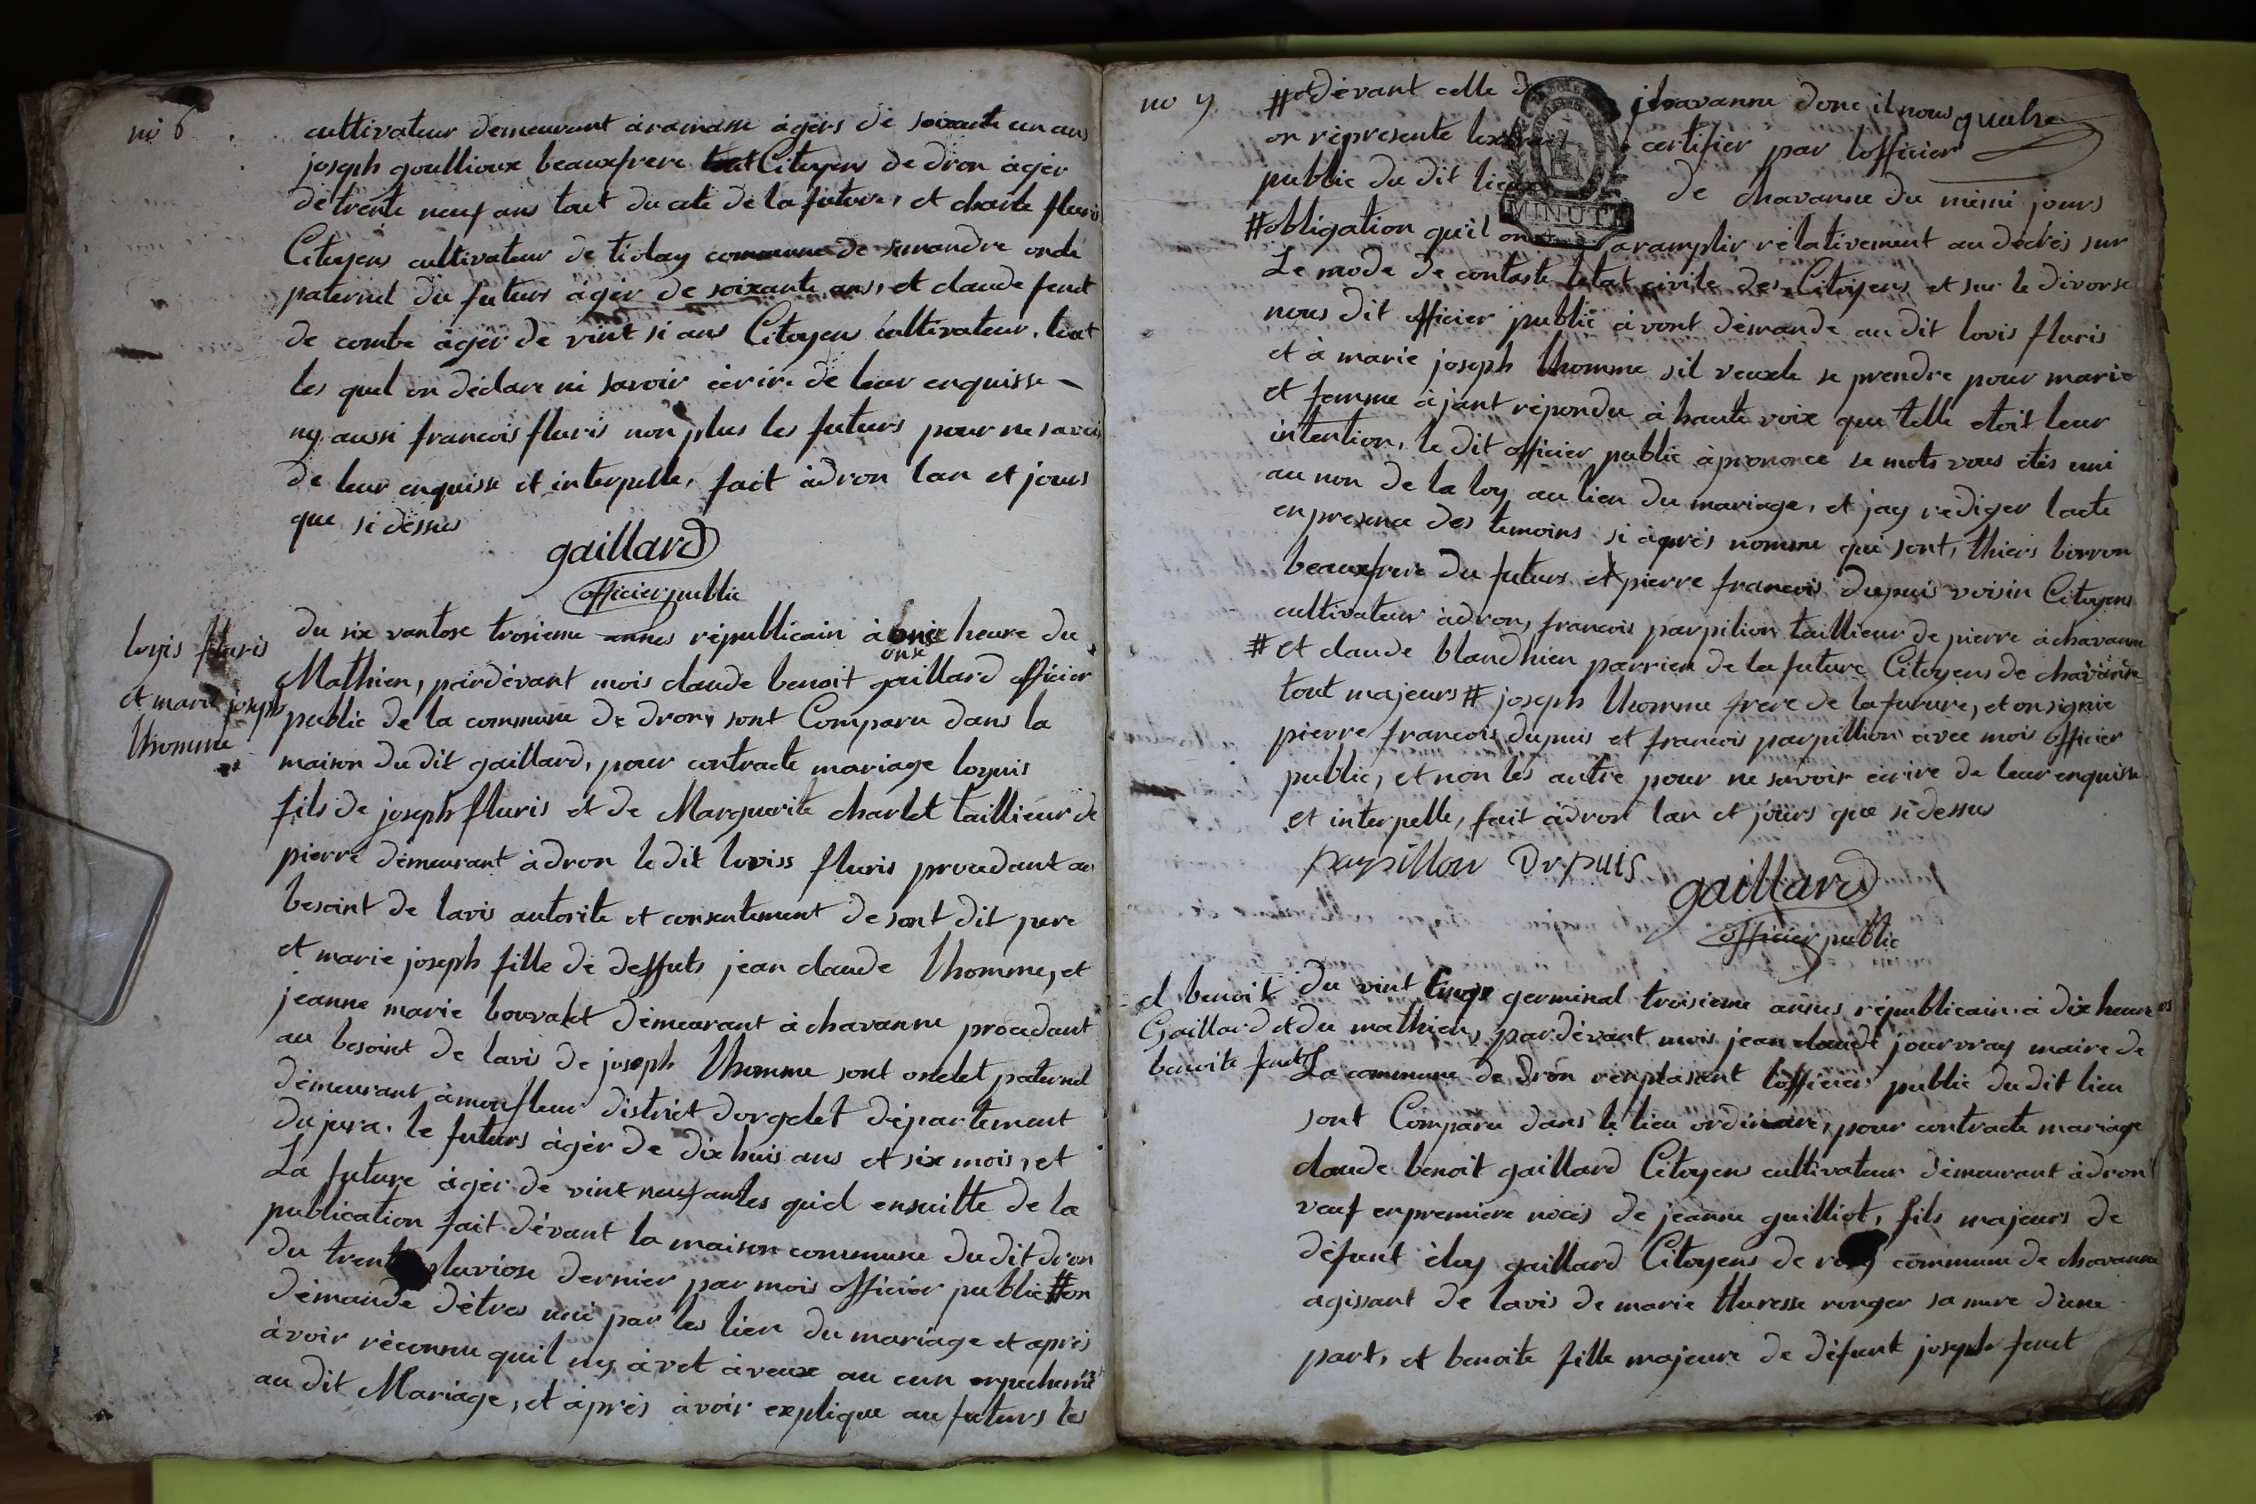 no 6
cultivateur demeurant a ramasse àgers de soixante un ans
joseph goullioux beauxfrere Citoyens de dron àgér
de trente neuf ans tout du cote de la future, et charle fluris
Citoyens cultivateur de tiolay commune de simandre oncle
paternel du futurs àgér de soixante ans, et claude feret
de combe àgér de vint si ans Citoyens cultivateur, tout
les quel on déclare ni savoir écrire de leur enquisse
ny aussi francois fluris non plus les futurs pour ne savoir
de leur enquisse et interpelle, fait àdron lan et jours
que si dessus
gaillard
officier public
loyis fluris
et marie joseph
lhomme
du six vantose trosieme annes républicain à onze heure du
onze
Mathien, pardévant mois claude benoit gaillard officier
public de la commune de dron, sont Comparu dans la
maison du dit gaillard, pour contracte mariage loyuis
fils de joseph fluris et de Marguerite charlet taillieur de
pierre démeurant àdron le dit loviss fluris procudant au
besoint de lavis autorite et consentement de sont dit pere
et marie joseph fille de deffuts jean claude lhomme, et
jeanne marie bouvalet démeurant à chavanne procudant
au besoint de lavis de joseph lhomme sont onclet paternel
démeurant àmonfleur district dorgelet département
du jura. le futurs àgér de dix huis ans et six mois, et
La future àgér de vint neuf ans les quel ensuitte de la
publication fait dévant la maison commune du dit dron
du trente pluviose dernier par mois officiér public # on
démande détres uni par les lien du mariage et aprés
àvoir réconnu quil ny àvet àveux au cun enpechemént
au dit Mariage, et àprés àvoir explique au futurs les
no 7
# et dévant celle de chavanne donc il nous quatre
on réprésente certifier par lofficier
public du dit lieux de chavanne du mémé jours
# obligation quil on aramplir rélativement au décrés sur
Le mode de contaste létat civile des Citoyens et sur le divorse
nous dit officier public àvont démande au dit lovis fluris
et à marie joseph lhomme sil veuxle se prendre pour marie
et femme àjant répondu à haute voix que telle etoit leur
intention, le dit officier public àprononce se mots vous étés uni
au non de la loy au lien du mariage, et jay rédiger lacte
enpresence des temoins si àprés nomme qui sont, thiers borron
beauxfrere du futurs et pierre francois dupuis voisin Citoyens
cultivateur àdron, francois parpilion taillieur de pierre à chavanne
# et claude blandhien parrien de la future Citoyens de chavanne
tout majeurs # joseph lhomme frere de la future, et on signie
pierre francois dupuis et francois parpillion avec mois officier
public, et non les autre pour ne savoir écrire de leur enquisse
et interpelle, fait àdron lan et jours que si dessus
parpillion Dupuis
gaillard
officier public
cl benoit
Gaillard et
benoite feret
du vint germinal troisieme annes républicain à dix heures
du mathien, pardévant mois jean claude jourvray maire de
La commune de dron renplasant lofficier public du dit lieu
sont Comparu dans le lieu ordinaire, pour contracte mariage
claude benoit gaillard Citoyens cultivateur démeurant àdron
veuf enpremiere nocés de jeanne guilliot, fils majeurs de
défunt éloy gaillard Citoyens de commune de chavanne
agissant de lavis de marie thuresse ronger sa mere dune
part, et benoite fille majeure de défunt joseph feret